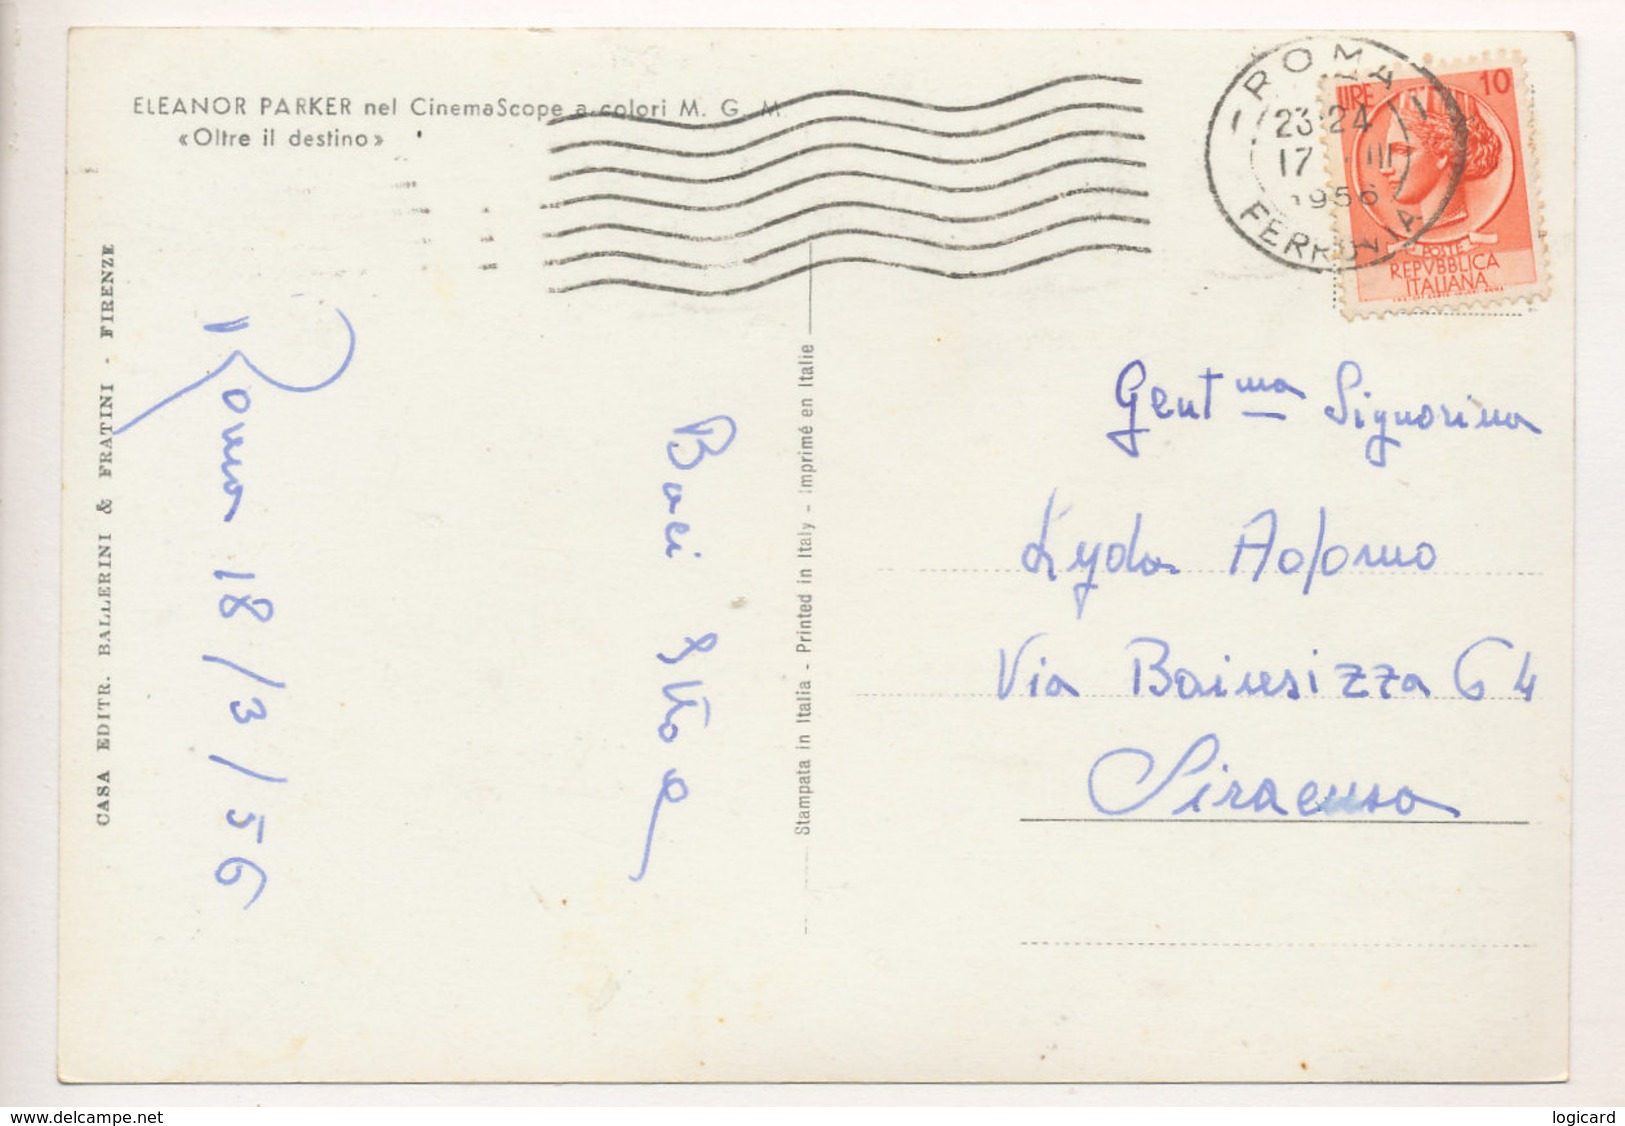 ELEANOR PARKER nel CinemaScope a colori M. G. M.
«Oltre il destino»
CASA EDITR. BALLERINI & FRATINI - FIRENZE
Roma 18/3/56
Baci
Stampata in Italia - Printed in Italy - Imprimé en Italie
ROMA
23-24
17 III
1956
FERROVIA
LIRE 10
POSTE
REPVBBLICA
ITALIANA
Gent ma Signorina
Lyda Adorno
Via 64
Siracusa
delcampe.net
logicard